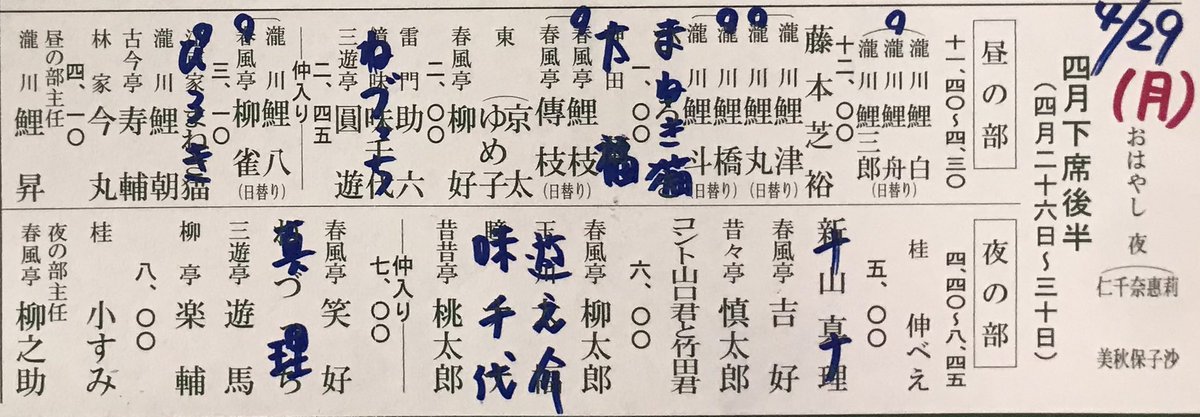 4/29
(月)
おはやし 夜
莉沙
惠子
奈保
千秋
仁美
四月下席後半
(四月二十六日〜三十日)
昼の部
十一、四〇〜四、三〇
瀧川鯉白
瀧川鯉舟
(日替り)
瀧川鯉三郎
十二、〇〇
藤本芝裕
瀧川鯉津
瀧川鯉丸
(日替り)
瀧川鯉橋
瀧川鯉斗
(日替り)
まねき猫
一、〇〇
太福
春風亭鯉枝
春風亭傳枝
(日替り)
東 京太 ゆめ子
春風亭柳好
二、〇〇
雷門助六
ねづっち
三遊亭圓遊
二、四五
仲入り
瀧川鯉八
春風亭柳雀
(日替り)
三、一〇
ぴろき
瀧川鯉朝
古今亭寿輔
林家今丸
四、一〇
昼の部主任
瀧川鯉昇
夜の部
四、四〇〜八、四五
桂伸べえ
五、〇〇
新山真理
春風亭吉好
昔々亭慎太郎
コント山口君と竹田君
六、〇〇
春風亭柳太郎
遊之介
味千代
昔昔亭桃太郎
仲入り
七、〇〇
春風亭笑好
真理
三遊亭遊馬
柳亭楽輔
八、〇〇
桂小すみ
夜の部主任
春風亭柳之助